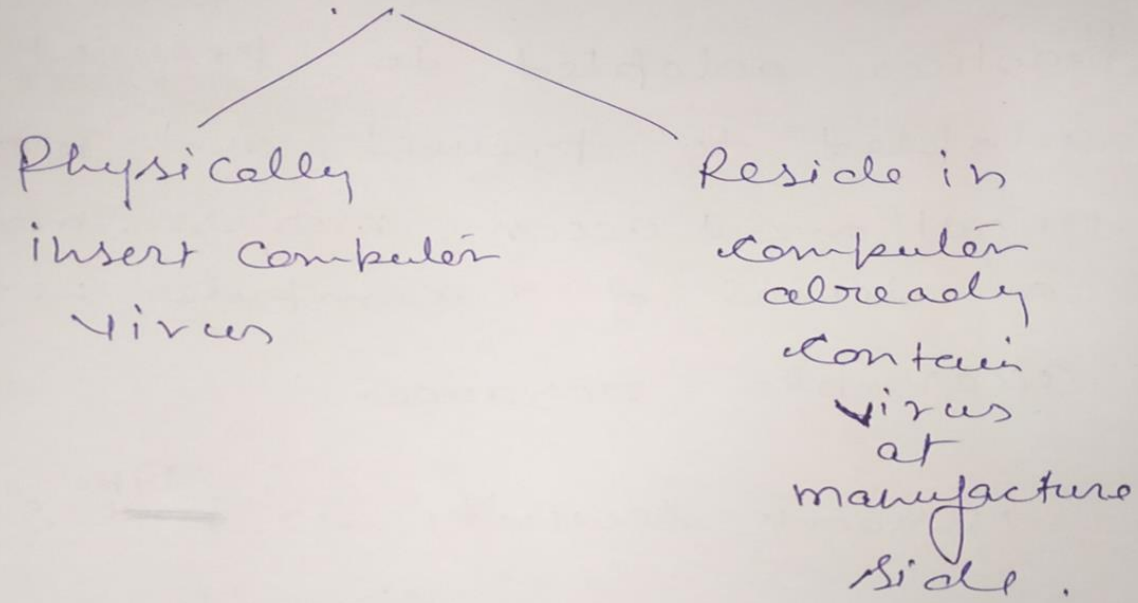 Physically
insert computer
virus
Reside in
computer
already
contain
virus
at
manufacture
side.